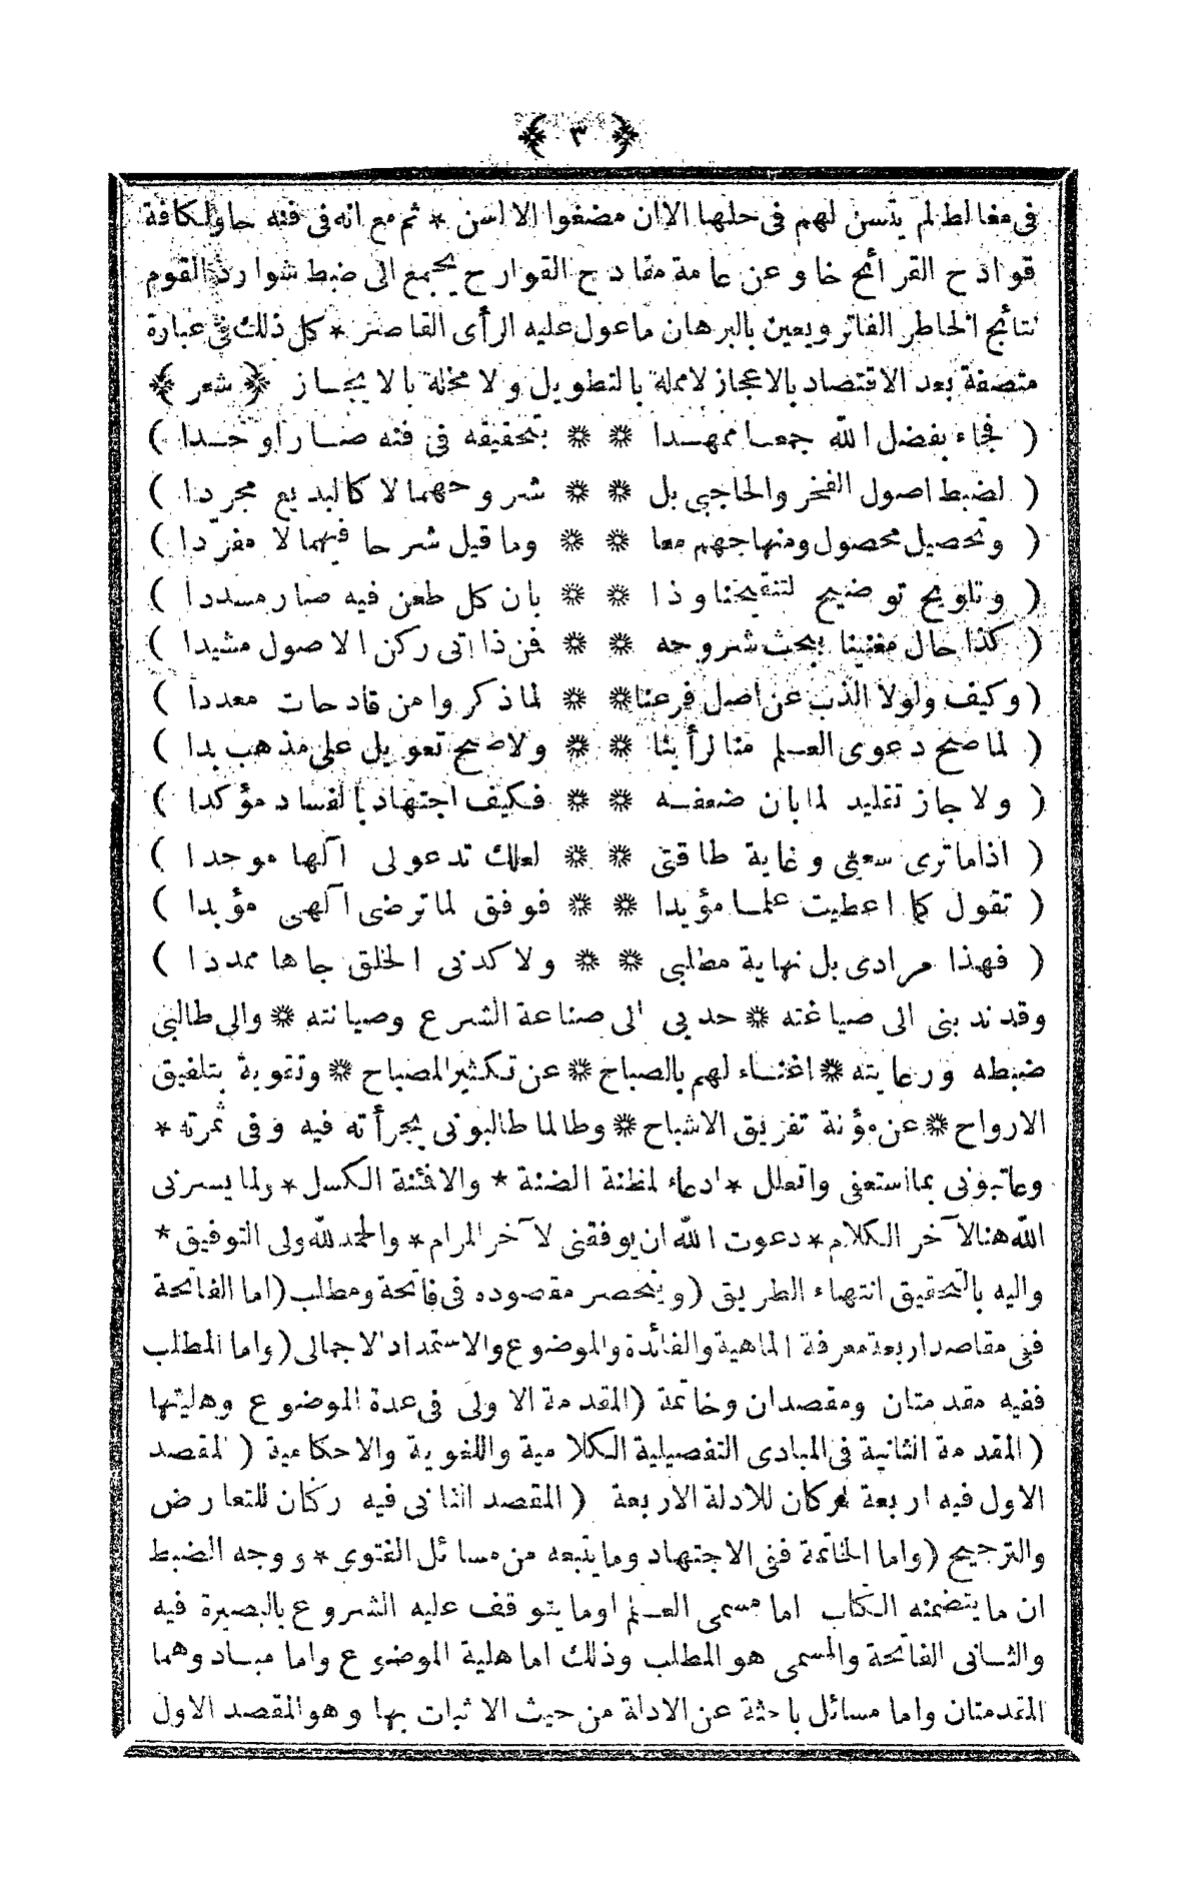 ﴿ ٣ ﴾
فى مغالط لم يتسن لهم فى حلها الا ان مضغوا الالسن * ثم مع انه فى فنه حاو لكافة
قوادح القرائح خاو عن عامة مقادح القوارح يجمع الى ضبط شوارد القوم
نتائج الخاطر الفاتر ويعين بالبرهان ما عول عليه الرأى القاصر * كل ذلك فى عبارة
متصفة بعد الاقتصاد بالاعجاز لا مملة بالتطويل ولا مخلة بالايجاز ﴿ شعر ﴾
( فجاء بفضل الله جمعا ممهدا ❊ ❊ بتحقيقه فى فنه صار اوحدا )
( لضبط اصول الفخر والحاجبى بل ❊ ❊ شروحهما لا كالبديع مجردا )
( وتحصيل محصول ومنهاجهم معا ❊ ❊ وما قيل شرحا فيهما لا مفرّدا )
( وتلويح توضيح لتنقيحنا وذا ❊ ❊ بان كل طعن فيه صار مسددا )
( كذا حال مغنينا ببحث شروحه ❊ ❊ فمن ذا اتى ركن الاصول مشيدا )
( وكيف ولولا الذب عن اصل فرعنا ❊ ❊ لما ذكروا من قادحات معددا )
( لما صح دعوى العلم منا لرأينا ❊ ❊ ولا صح تعويل على مذهب بدا )
( ولا جاز تقليد لما بان ضعفه ❊ ❊ فكيف اجتهاد بالفساد مؤكدا )
( اذا ما ترى سعيى وغاية طاقتى ❊ ❊ لعلك تدعو لى آلها موحدا )
( تقول كما اعطيت علما مؤيدا ❊ ❊ فوفق لما ترضى آلهى مؤبدا )
( فهذا مرادى بل نهاية مطلبى ❊ ❊ ولا كدنى الخلق جاها ممددا )
وقد ندبنى الى صياغته ❊ حدبى الى صناعة الشرع وصيانته ❊ والى طالبى
ضبطه ورعايته ❊ اغناء لهم بالصباح ❊ عن تكثير المصباح ❊ وتقوية بتلفيق
الارواح ❊ عن مؤنة تفريق الاشباح ❊ وطالما طالبونى بجرأته فيه وفى ثمرته *
وعاتبونى بما استعفى واتعلل * ادعاء لمظنة الضنة * والافئنة الكسل * ولما يسر نى
الله هنا لآخر الكلام * دعوت الله ان يوفقنى لآخر المرام * والحمد لله ولى التوفيق *
واليه بالتحقيق انتهاء الطريق ( وينحصر مقصوده فى فاتحة ومطلب ( اما الفاتحة
ففى مقاصد اربعة معرفة الماهية والفائدة والموضوع والاستمداد الاجمالى ( واما المطلب
ففيه مقدمتان ومقصدان وخاتمة ( المقدمة الاولى فى عدة الموضوع وهليتها
( المقدمة الثانية فى المبادى التفصيلية الكلامية واللغوية والاحكامية ( المقصد
الاول فيه اربعة اركان للادلة الاربعة ( المقصد الثانى فيه ركنان للتعارض
والترجيح ( واما الخاتمة ففى الاجتهاد وما يتبعه من مسائل الفتوى * ووجه الضبط
ان ما يتضمنه الكتاب اما مسمى العلم او ما يتوقف عليه الشروع بالبصيرة فيه
والثانى الفاتحة والمسمى هو المطلب وذلك اما هلية الموضوع واما مباد وهما
المقدمتان واما مسائل باحثة عن الادلة من حيث الاثبات بها وهو المقصد الاول